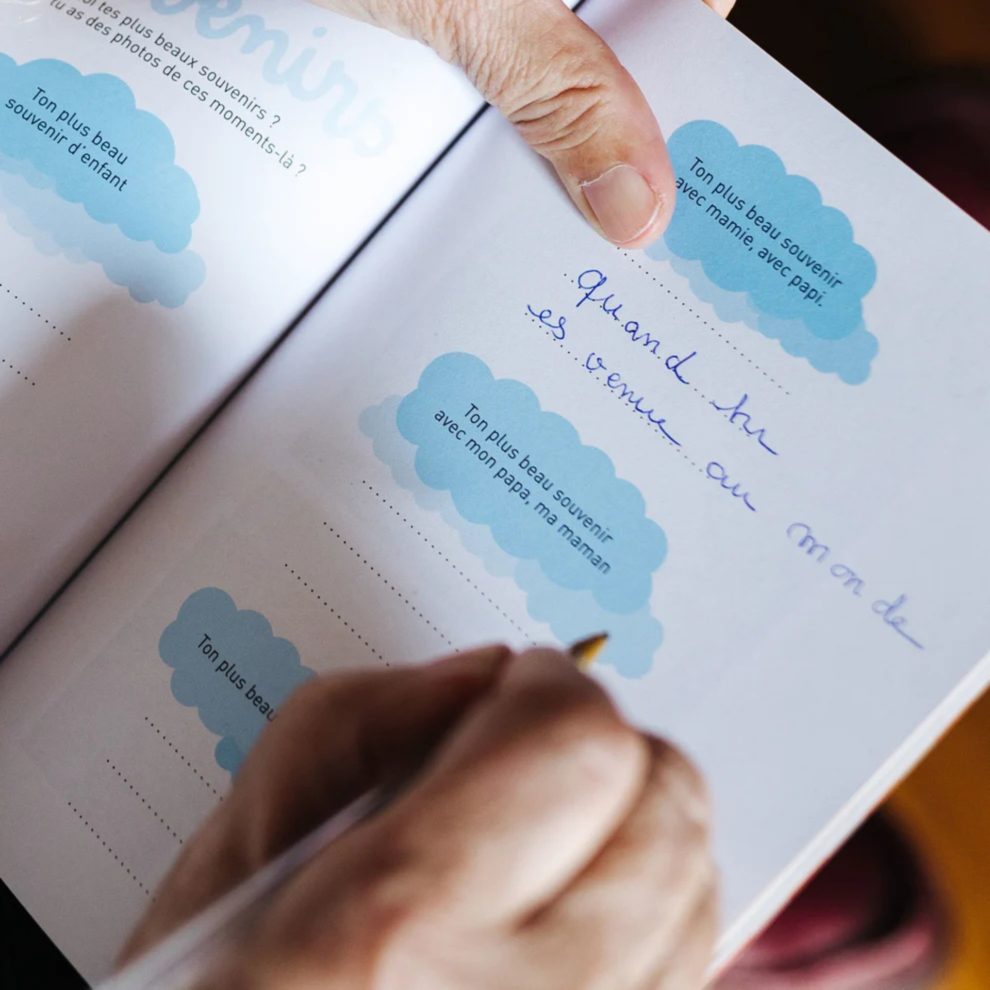 venirs
tes plus beaux souvenirs ?
tu as des photos de ces moments-là ?
Ton plus beau
souvenir d'enfant
Ton plus beau souvenir
avec mamie, avec papi.
quand tu
es venue au monde
Ton plus beau souvenir
avec mon papa, ma maman
Ton plus beau